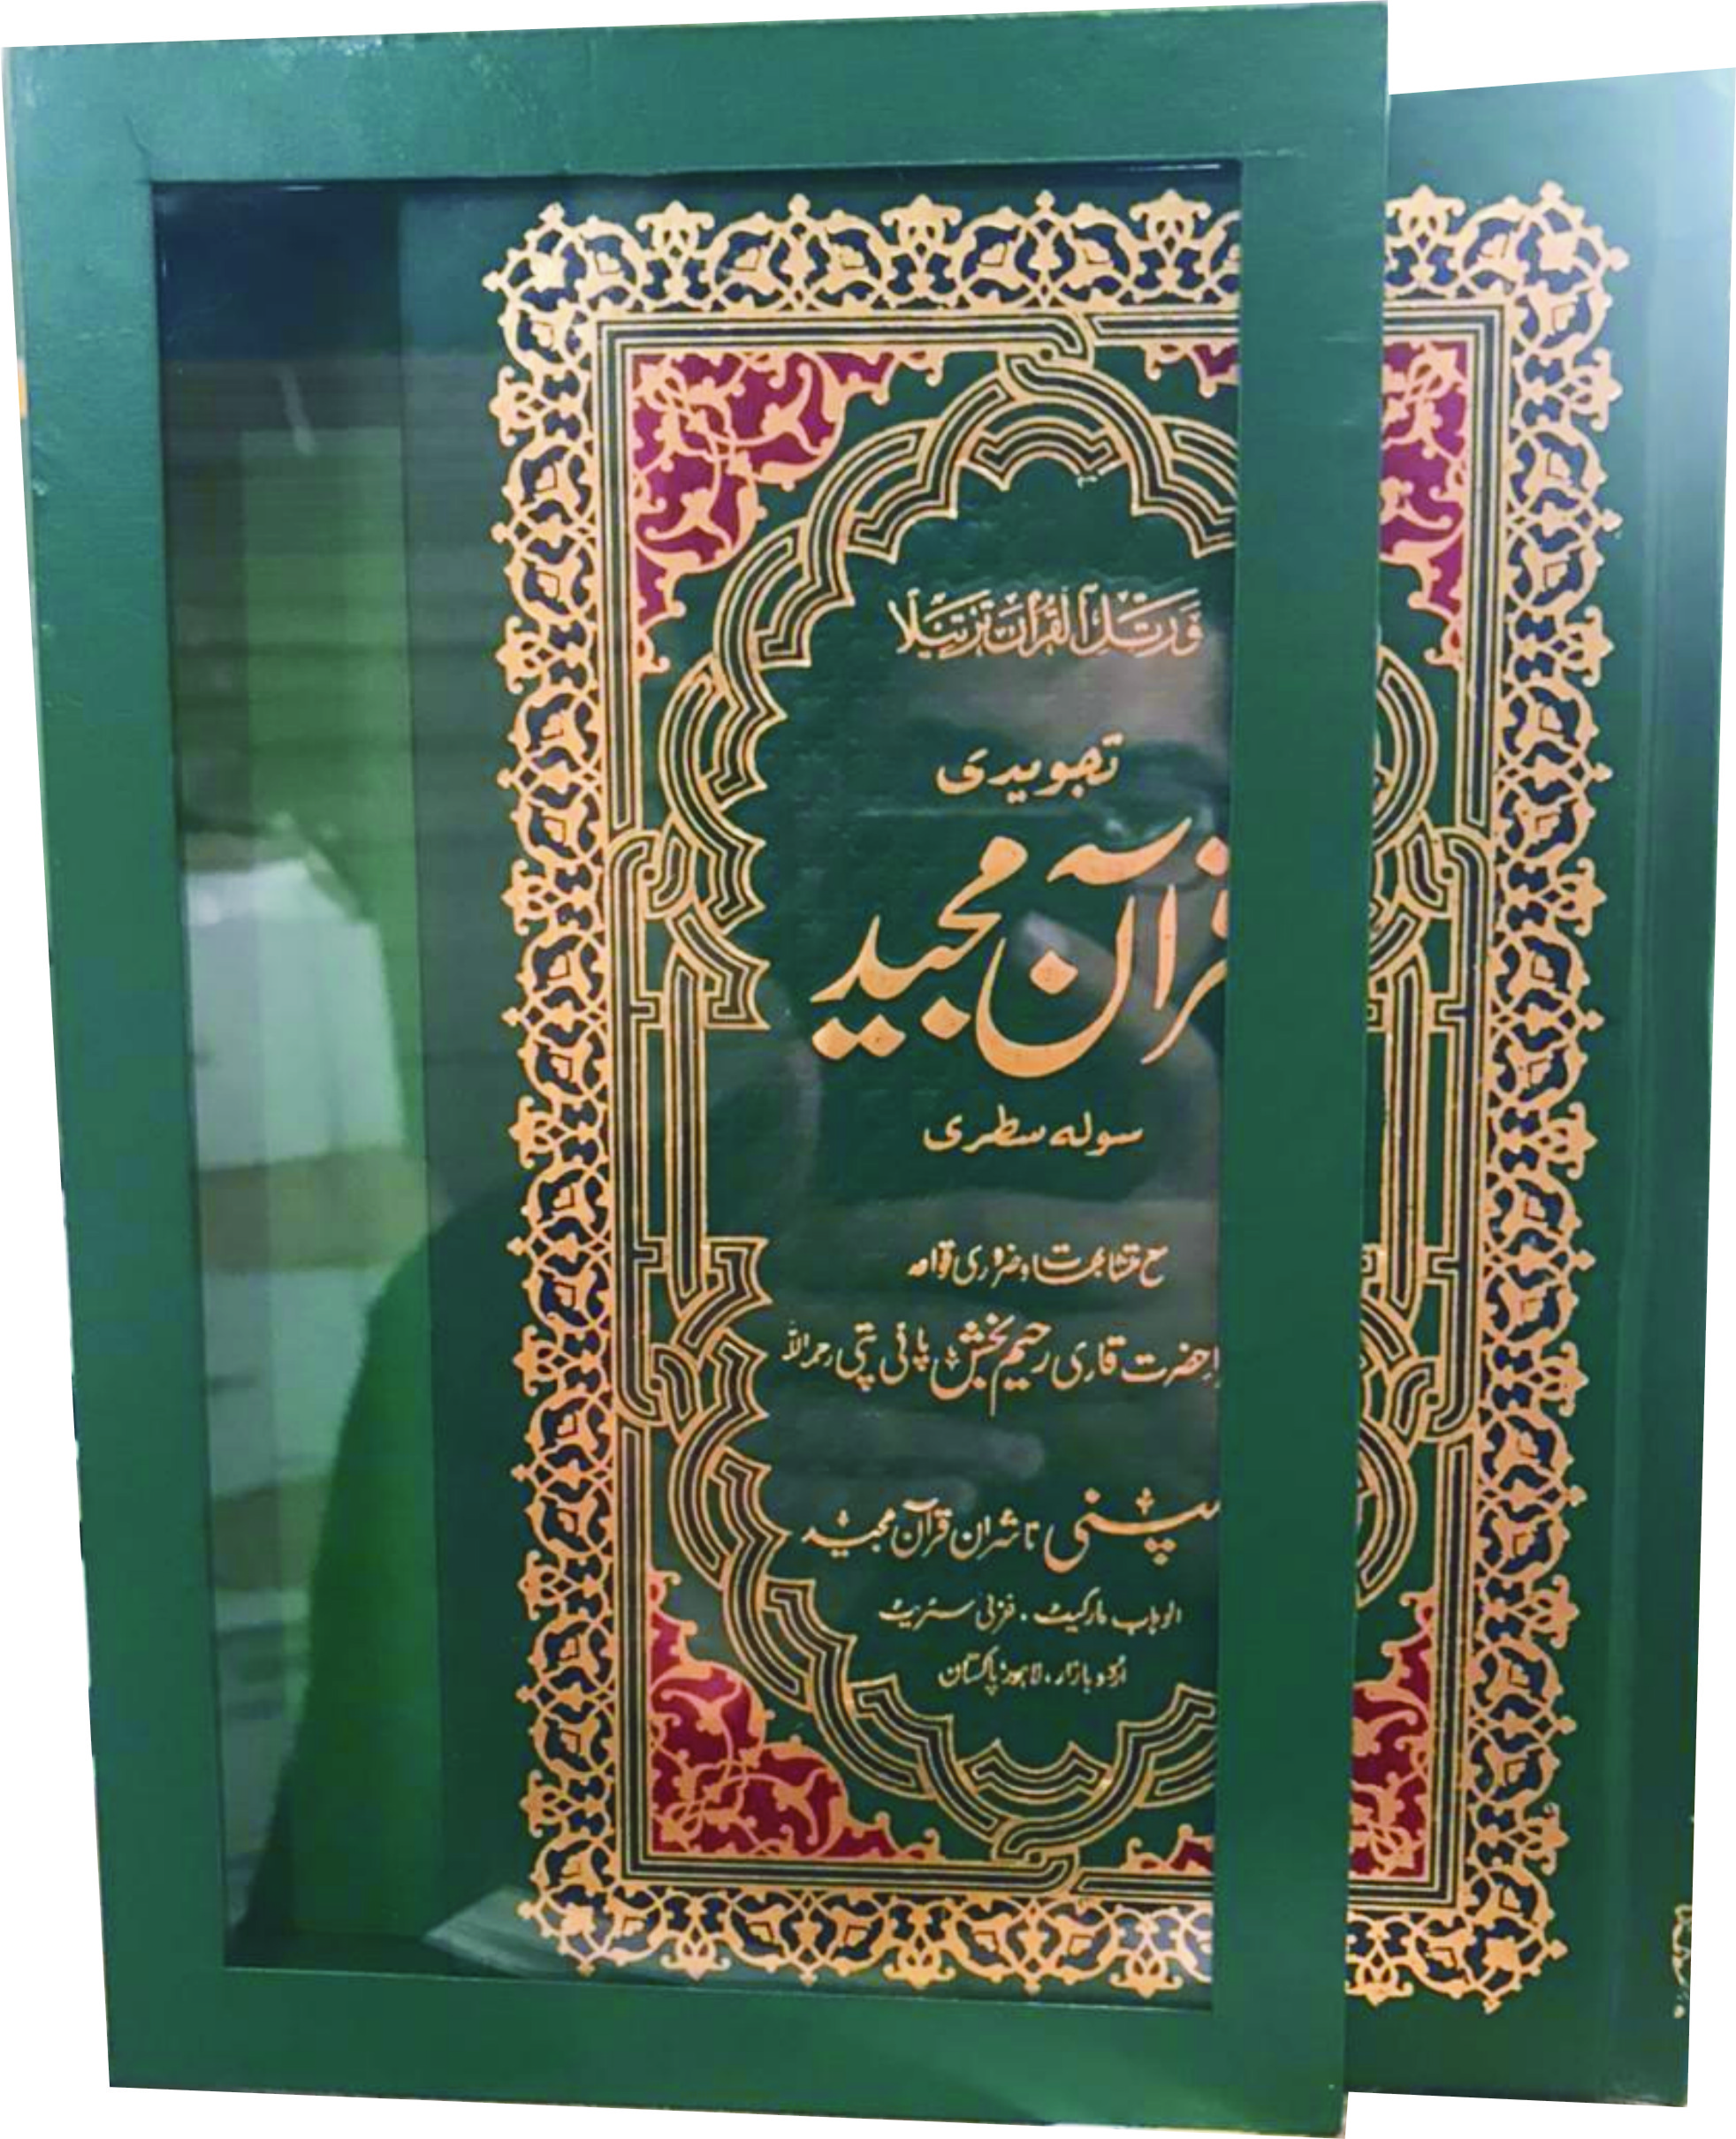 وَرَتِّلِ الْقُرْاٰنَ تَرْتِيْلًا
تجویدی
قرآن مجید
سولہ سطری
مع متشابہات و ضروری قواعد
حضرت قاری رحیم بخش پانی پتی رحمہ اللہ
کمپنی ناشران قرآن مجید
الوہاب مارکیٹ، غزنی سٹریٹ
اردو بازار، لاہور پاکستان